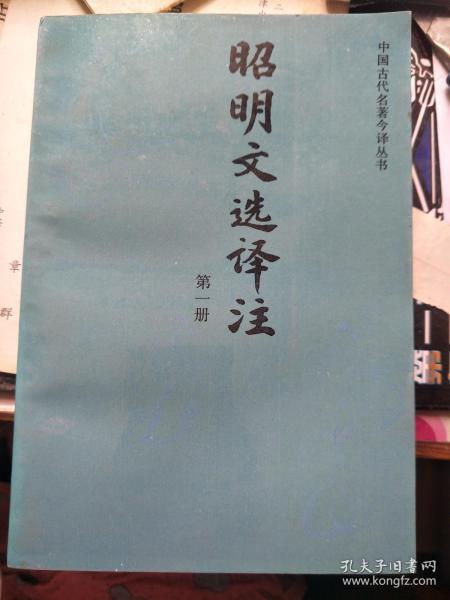 中国古代名著今译丛书
昭明文选译注
第一册
章
群
孔夫子旧书网
www.kongfz.com